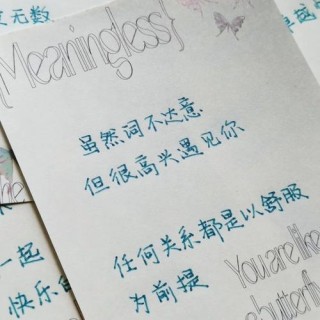 无数
{Meaningless}
虽然词不达意
但很高兴遇见你
任何关系都是以舒服
为前提
You are like
a butterfl
一起
快乐